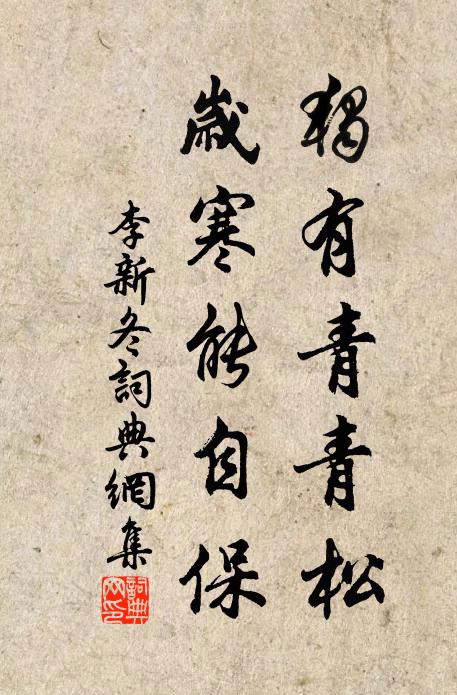 獨有青青松
歲寒能自保
李新冬詞典網集
詞典网印